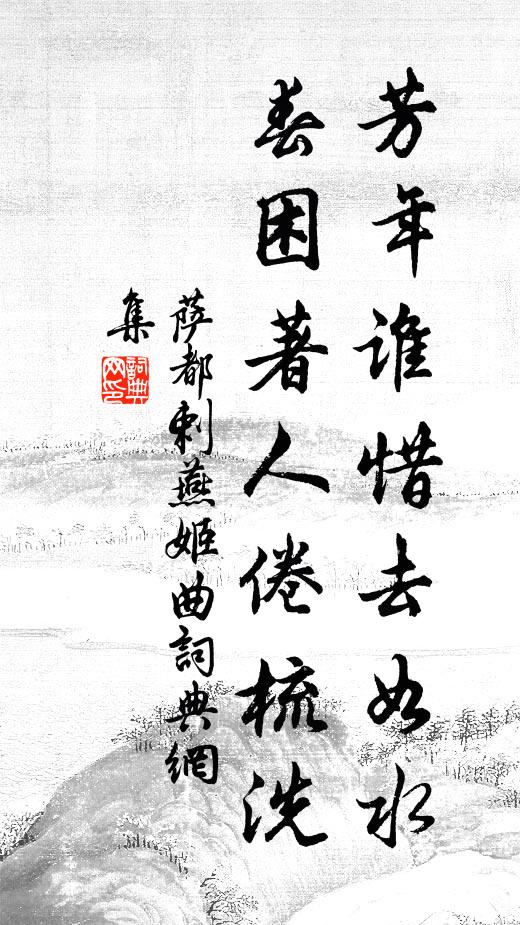 芳年谁惜去如水
春困著人倦梳洗
萨都刺燕姬曲詞典網
集
詞典网印